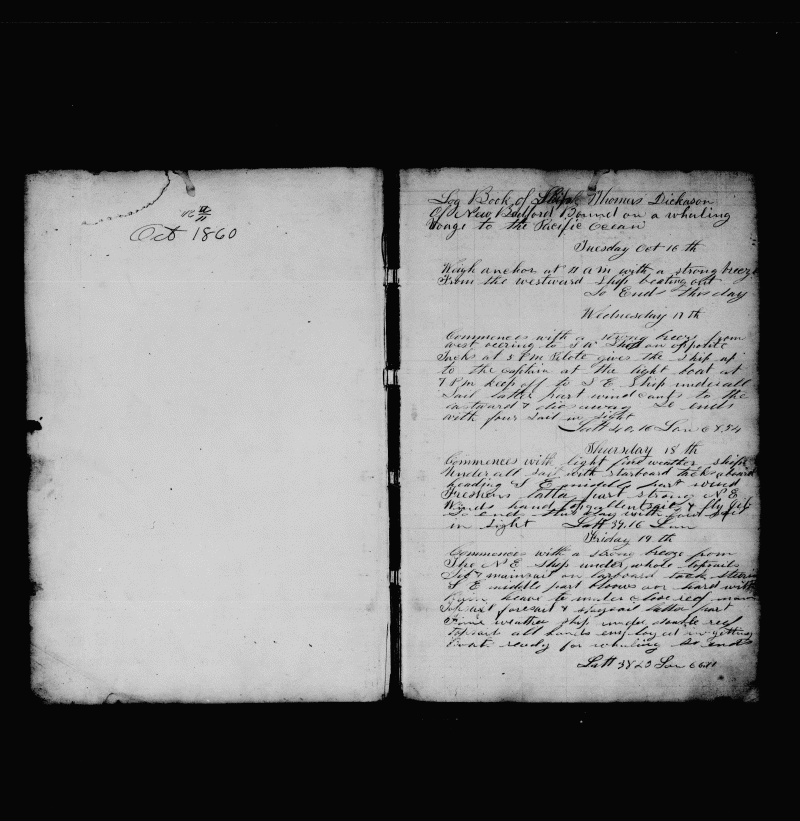 Oct 1860
Log Book of Ship Thomas Dickason
Of New Bedford Bound on a whaling
Voage to the Pacific Ocean
Tuesday Oct 16 th
Weigh anchor at 11 am with a strong breeze
From the westward Ship beating out
So Ends this day
Wednesday 17 th
Commences with a strong breeze from
west veering to S W Ship on opposite
Tacks at 5 P m Pilote gives the Ship up
to the Captain at the light boat at
7 P m keep off to S E Ship under all
Sail latter part wind cants to the
eastward & dies away So ends
with four Sail in sight
Latt 40.16 Lon 68.54
Thursday 18 th
Commences with light fine weather Ship
Under all sail with starboard tacks aboard
heading S E middle part wind
Freshens latter part strong N E
Winds hand & fly jib
So ends this day with four sail
in sight Latt 39.16 Lon
Friday 19 th
Commences with a strong breeze from
The N E Ship under whole topsails
Jib & mainsail on larboard tack steering
S E middle part blows hard with
heave to under close reef main
Topsail foresail & staysail latter part
Fine weather ship under double reef
topsails all hands employed in getting
boats ready for whaling So ends
Latt 38 23 Lon